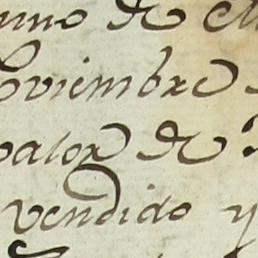 de
Noviembre
valor de
vendido y